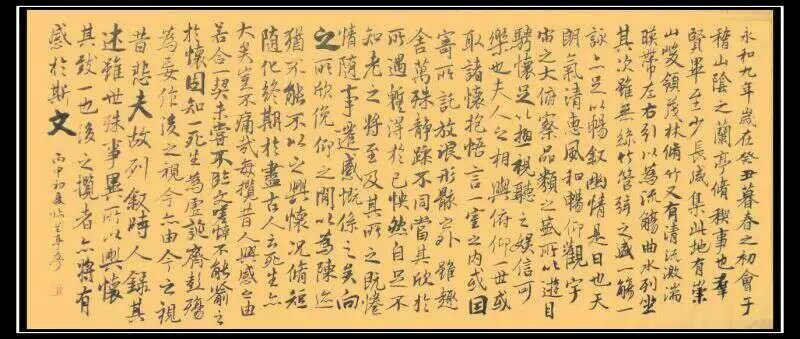 永和九年歲在癸丑暮春之初會于
稽山陰之蘭亭脩稧事也羣
賢畢至少長咸集此地有崇
山峻領茂林脩竹又有清流激湍
暎帶左右引以為流觴曲水列坐
其次雖無絲竹管弦之盛一觴一
詠亦足以暢叙幽情是日也天
朗氣清惠風和暢仰觀宇
宙之大俯察品類之盛所以遊目
騁懷足以極視聽之娛信可
樂也夫人之相與俯仰一世或
取諸懷抱悟言一室之内或因
寄所託放浪形骸之外雖趣
舍萬殊静躁不同當其欣於
所遇暫得於己怏然自足不
知老之將至及其所之既惓
情隨事遷感慨係之矣向
之所欣俛仰之間以為陳迹
猶不能不以之興懷況脩短
隨化終期於盡古人云死生亦
大矣豈不痛哉每攬昔人興感之由
若合一契未嘗不臨文嗟悼不能喻之
於懷固知一死生為虛誕齊彭殤
為妄作後之視今亦由今之視
昔悲夫故列叙時人録其
述雖世殊事異所以興懷
其致一也後之攬者亦將有
感於斯文
丙申初夏臨蘭亭序